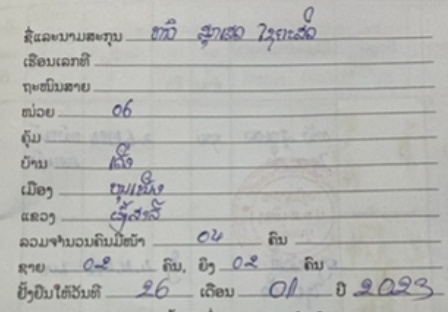 ຊື່ແລະນາມສະກຸນ ທ້າວ ສຸກເສດ ໄຊຍະສິດ
ເຮືອນເລກທີ
ຖະໜົນສາຍ
ໜ່ວຍ 06
ຄຸ້ມ
ບ້ານ ເດີ່ງ
ເມືອງ ບຸນເໜືອ
ແຂວງ ຜົ້ງສາລີ
ລວມຈຳນວນຄົນມີໜ້າ 04 ຄົນ
ຊາຍ 02 ຄົນ, ຍິງ 02 ຄົນ
ຢັ້ງຢືນໃຫ້ວັນທີ 26 ເດືອນ 01 ປີ 2023